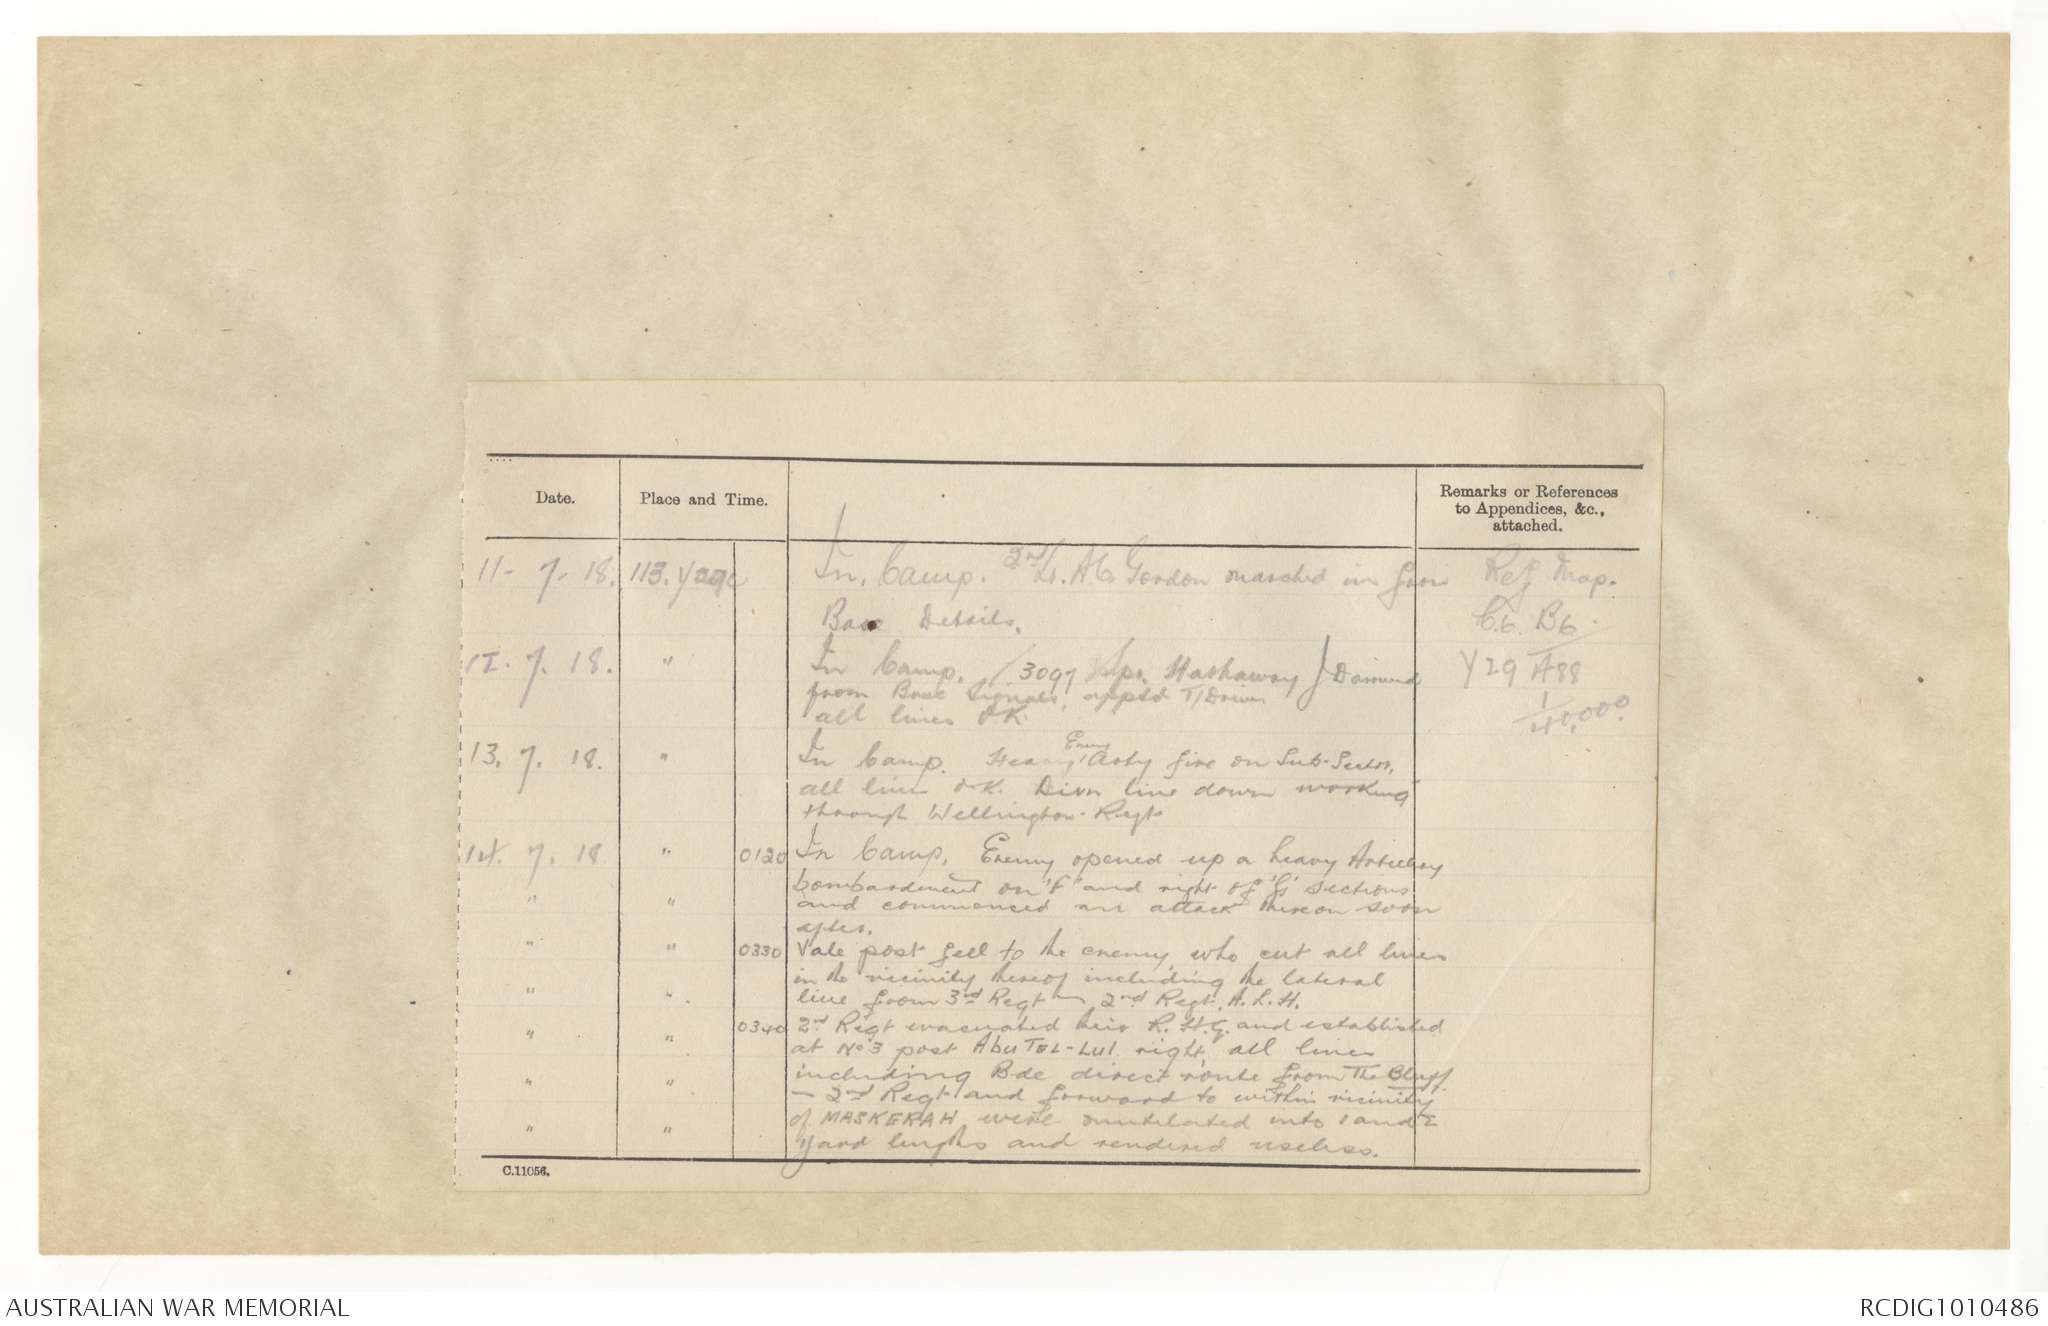 Date.
Place and Time.
Remarks or References
to Appendices, &c.,
attached.
11- 7. 18. 113. Y29c In Camp. 2nd Lt. A.C. Gordon marched in from Ref Map.
Base Details. C.6. B6.
12. 7. 18. " In Camp. 3097 Spr. Hathaway J Y29 A88
from Base Signals, apptd T/Driver 1/40,000.
all lines O.K.
13. 7. 18. " In Camp. Heavy Enemy Arty fire on Sub-Sector,
all lines O.K. Divn line down working
through Wellington Regt
14. 7. 18 " 0120 In Camp. Enemy opened up a heavy Artillery
bombardment on 'F' and right of 'G' sections
" " and commenced an attack thereon soon
after.
" " 0330 Vale post fell to the enemy, who cut all lines
in the vicinity thereof including the lateral
" " line from 3rd Regt — 2nd Regt. A.L.H.
" " 0340 2nd Regt evacuated their R.H.Q. and established
at No 3 post Abu TEL-LUL right, all lines
" " including Bde direct route from The Bluff
— 2nd Regt and forward to within vicinity
" " of MASKERAH were mutilated into 1 and 2
yard lengths and rendered useless.
C.11056.
AUSTRALIAN WAR MEMORIAL
RCDIG1010486